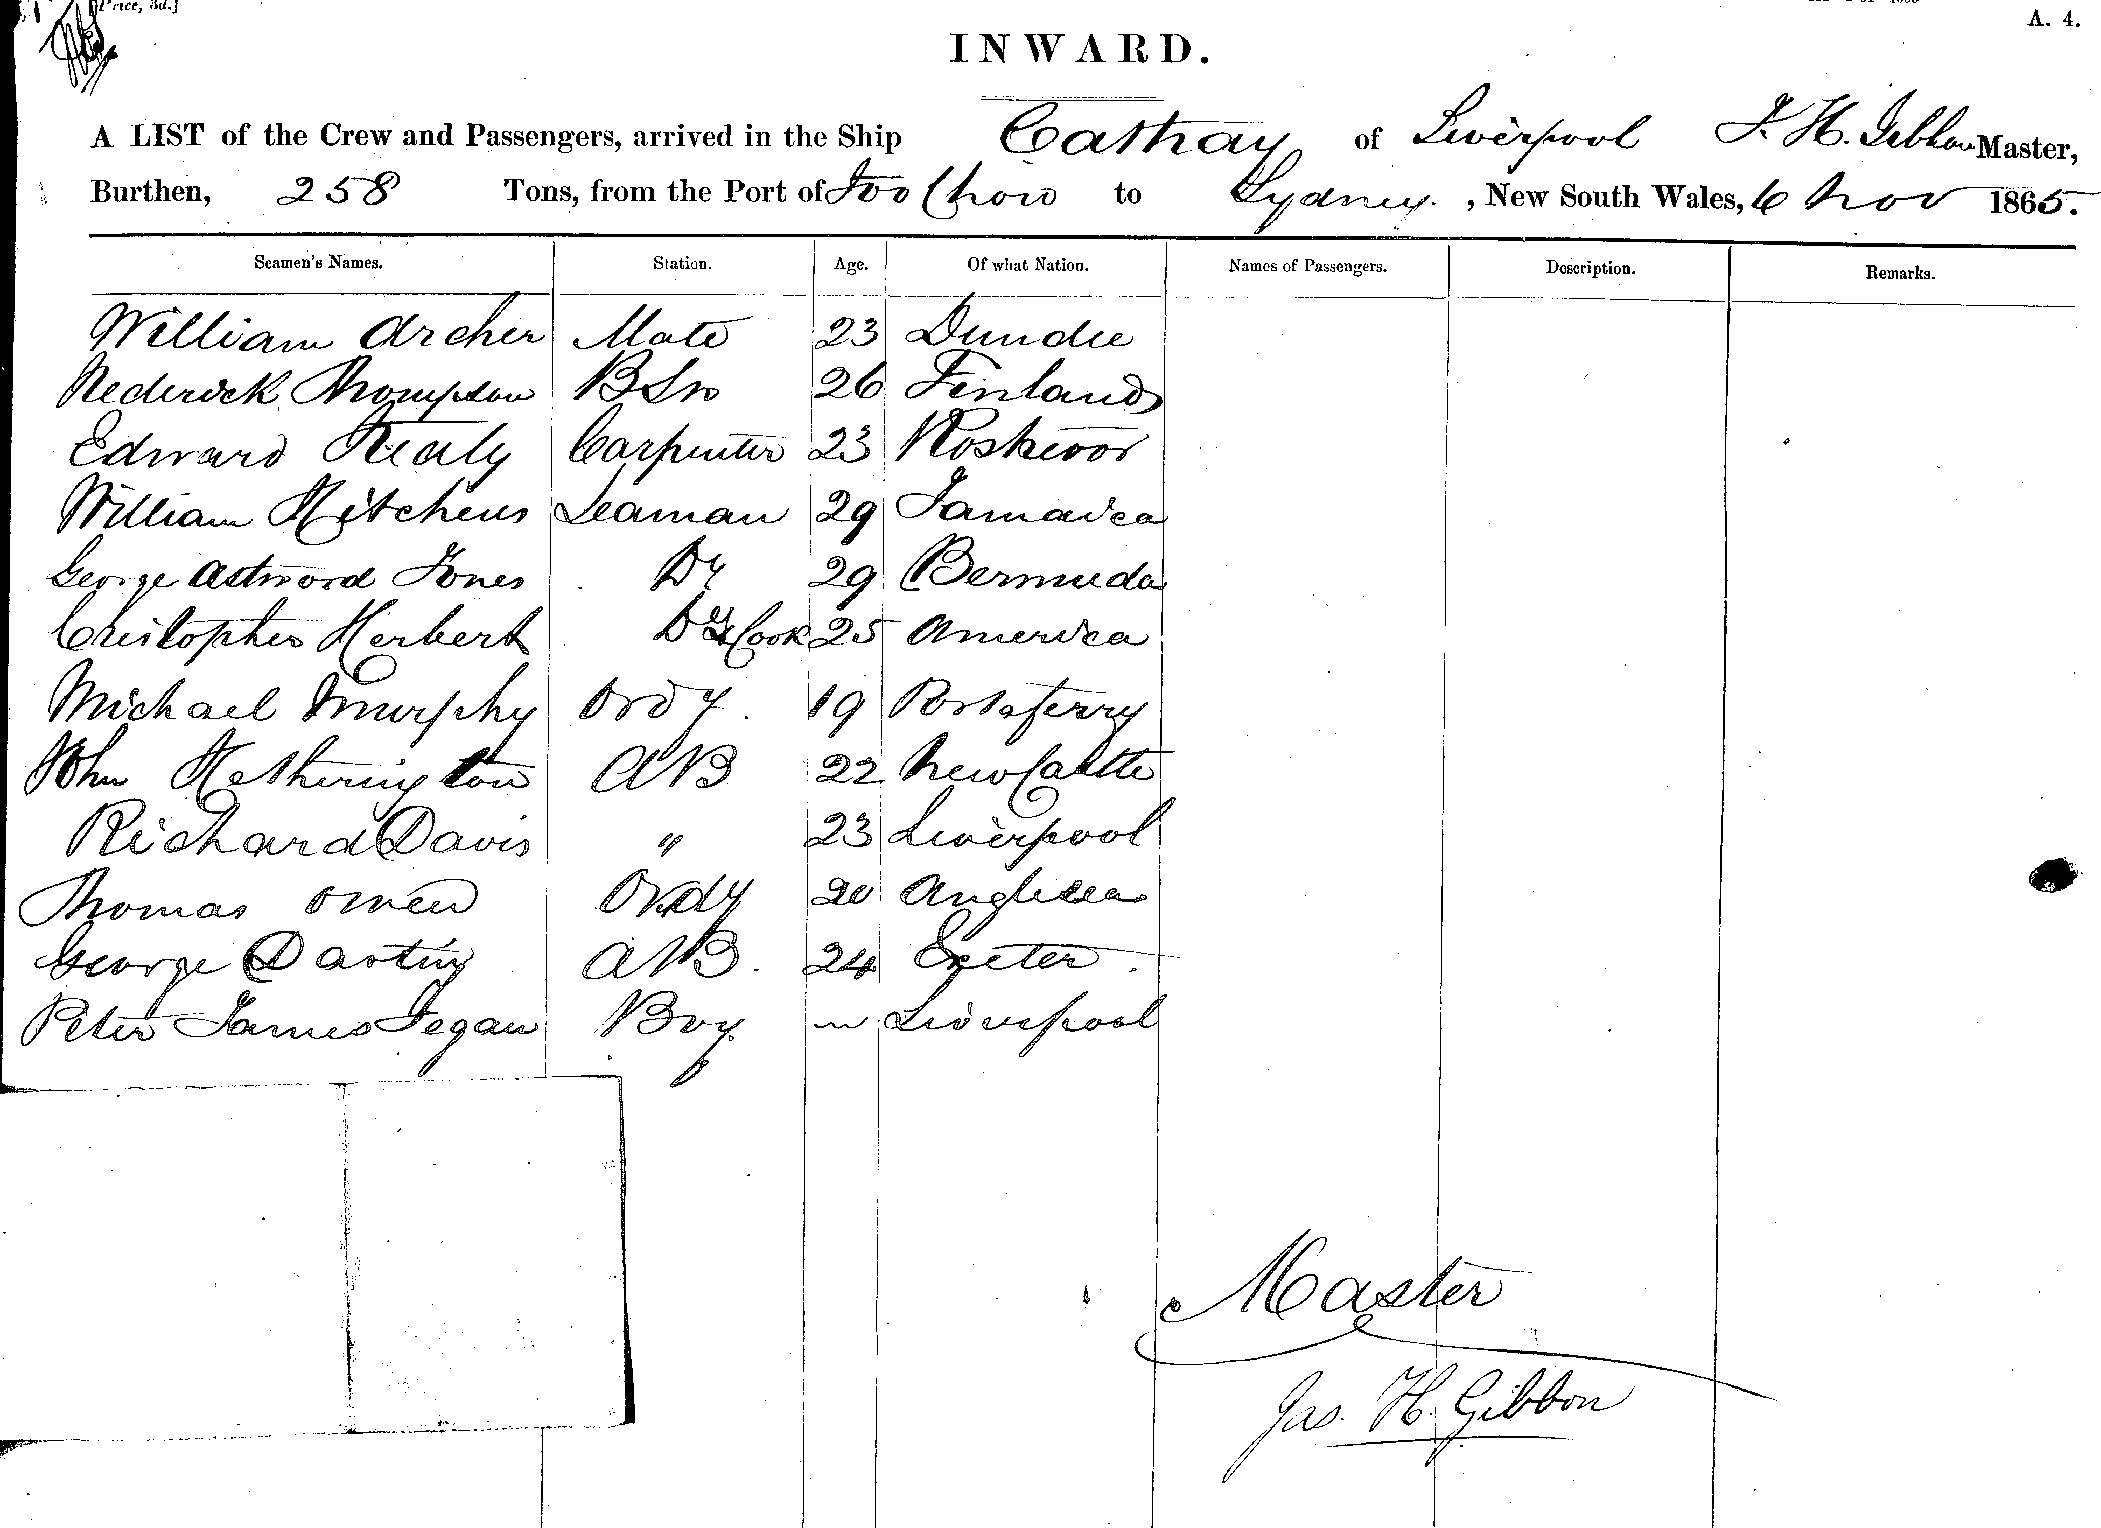 Price, 3d.]
A. 4.
INWARD.
A LIST of the Crew and Passengers, arrived in the Ship Cathay of Liverpool J. H. Gibbon Master,
Burthen, 258 Tons, from the Port of Foo Chow to Sydney. , New South Wales, 6 Nov 1865.
Seamen's Names. Station. Age. Of what Nation. Names of Passengers. Description. Remarks.
William Archer Mate 23 Dundee
Thompson BSn 26 Finland
Edward Healy Carpenter 23 Rostrevor
William Hitchens Seaman 29 Jamaica
George Astwood Jones Do 29 Bermuda
Christopher Herbert Do & Cook 25 America
Michael Murphy Ordy 19 Portaferry
John Hetherington AB 22 NewCastle
Richard Davis " 23 Liverpool
Thomas Owen Ordy 20 Anglesea
George AB. 24 Exeter.
Peter James Fegan Boy. " Liverpool
Master
Jas. H. Gibbon